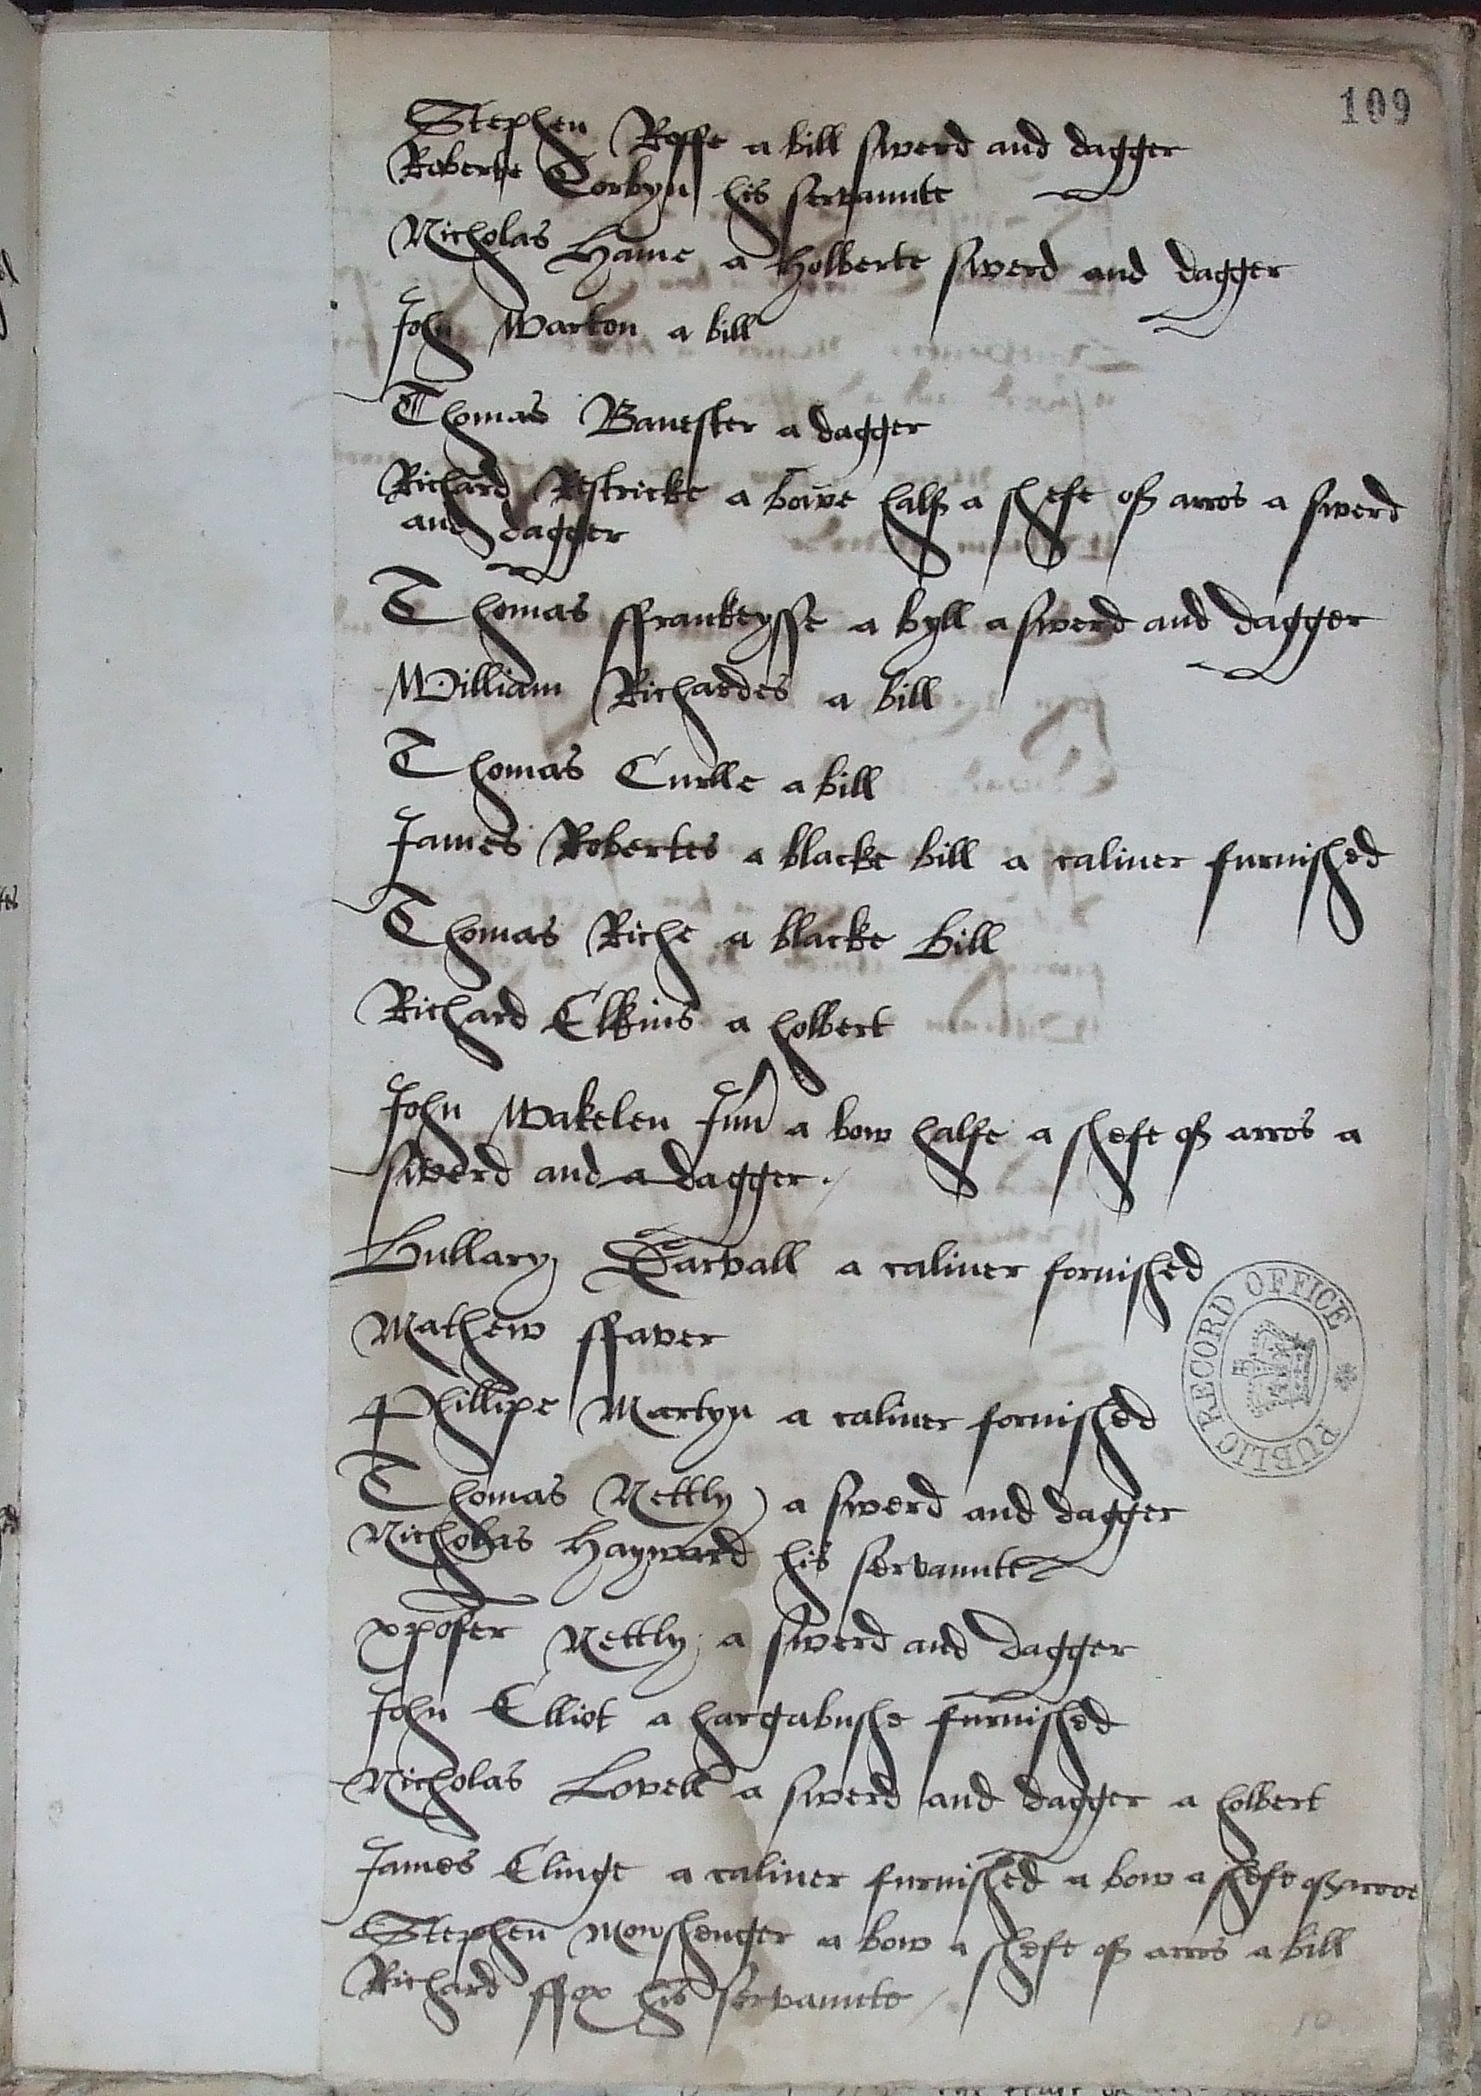 109
Stephen Roffe a bill swerd and dagger
Roberte Corbyn his servannte
Nicholas Hame a Holberte swerd and dagger
John Warton a bill
Thomas Banester a dagger
Richard Restricke a bowe half a shefe of arros a swerd
and dagger
Thomas ffrankeysse a byll a swerd and dagger
William Richardes a bill
Thomas Curlle a bill
James Robertes a blacke bill a caliver furnished
Thomas Riche a blacke Bill
Richard Elkins a holbert
John Wakelen Jun a bow halfe a shefe of arros a
swerd and a dagger
Hullary Darvall a caliver fornished
Mathew ffaver
Phillipe Martyn a caliver fornished
Thomas Nettly a swerd and dagger
Nicholas Hayward his servannte
xpofer Nettly a swerd and dagger
John Elliot a hargabushe furnished
Nicholas Lovell a swerd and dagger a holbert
James Clinge a caliver furnished a bow a shefe of arros
Stephen Mowshenger a bow a shefe of arros a bill
Richard ffox his servannte
PUBLIC RECORD OFFICE
10